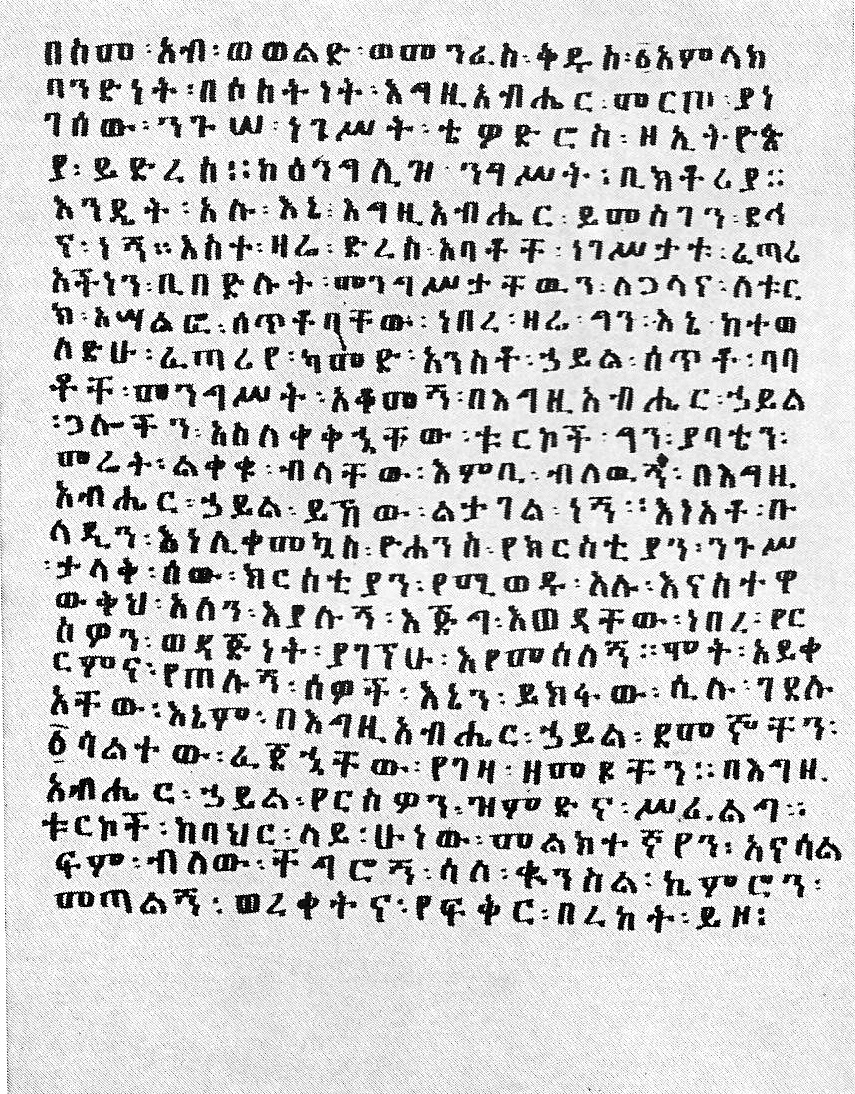 በስመ፡አብ፡ወወልድ፡ወመንፈስ፡ቅዱስ፡፩አምላክ
ባንድነት፡በሶስትነት፡እግዚአብሔር፡መርጦ፡ያነ
ገሰው፡ንጉሠ፡ነገሥት፡ቴዎድሮስ፡ዘኢትዮጵ
ያ፡ይድረስ፡፡ከዕንግሊዝ፡ንግሥት፡ቢክቶሪያ፡፡
እንዴት፡አሉ፡እኔ፡እግዚአብሔር፡ይመስገን፡ደኅ
ና፡ነኝ።እስተ፡ዛሬ፡ድረስ፡አባቶች፡ነገሥታቱ፡ፈጣሪ
አችነን፡ቢበድሉት፡መንግሥታቸዉን፡ለጋላና፡ለቱር
ክ፡አሣልፎ፡ሰጥቶባቸው፡ነበረ፡ዛሬ፡ግን፡እኔ፡ከተወ
ለድሁ፡ፈጣሪየ፡ካመድ፡አንስቶ፡ኃይል፡ሰጥቶ፡ባባ
ቶች፡መንግሥት፡አቆመኝ፡በእግዚአብሔር፡ኃይል
፡ጋሎችን፡አስለቀቅኋቸው፡ቱርኮች፡ግን፡ያባቴን፡
መሬት፡ልቀቁ፡ብላቸው፡እምቢ፡ብለዉኝ፡በእግዚ
አብሔር፡ኃይል፡ይኸው፡ልታገል፡ነኝ፡፡እነአቶ፡ቡ
ላዲን፡እነሊቀመኳስ፡ዮሐንስ፡የክርስቲያን፡ንጉሥ
፡ታላቅ፡ሰው፡ክርስቲያን፡የሚወዱ፡አሉ፡እናስተዋ
ውቅህ፡እስን፡እያሉኝ፡እጅግ፡እወዳቸው፡ነበረ፡የር
ስዎን፡ወዳጅነት፡ያገኘሁ፡እየመሰለኝ፡፡ሞት፡አይቀ
ርምና፡የጠሉኝ፡ሰዎች፡እኔን፡ይክፋው፡ሲሉ፡ገደሉ
አቸው፡እኔም፡በእግዚአብሔር፡ኃይል፡ደመኞችን፡
፩ሳልተው፡ፈጀኋቸው፡የገዛ፡ዘመዶቸን፡፡በእግዚ
አብሔር፡ኃይል፡የርስዎን፡ዝምድና፡ሥፈልግ፡፡
ቱርኮች፡ከባህር፡ላይ፡ሁነው፡መልክተኛየን፡አናሳል
ፍም፡ብለው፡ቸግሮኝ፡ሳለ፡ቈንስል፡ኪምሮን፡
መጣልኝ፡ወረቀትና፡የፍቅር፡በረከት፡ይዞ፡